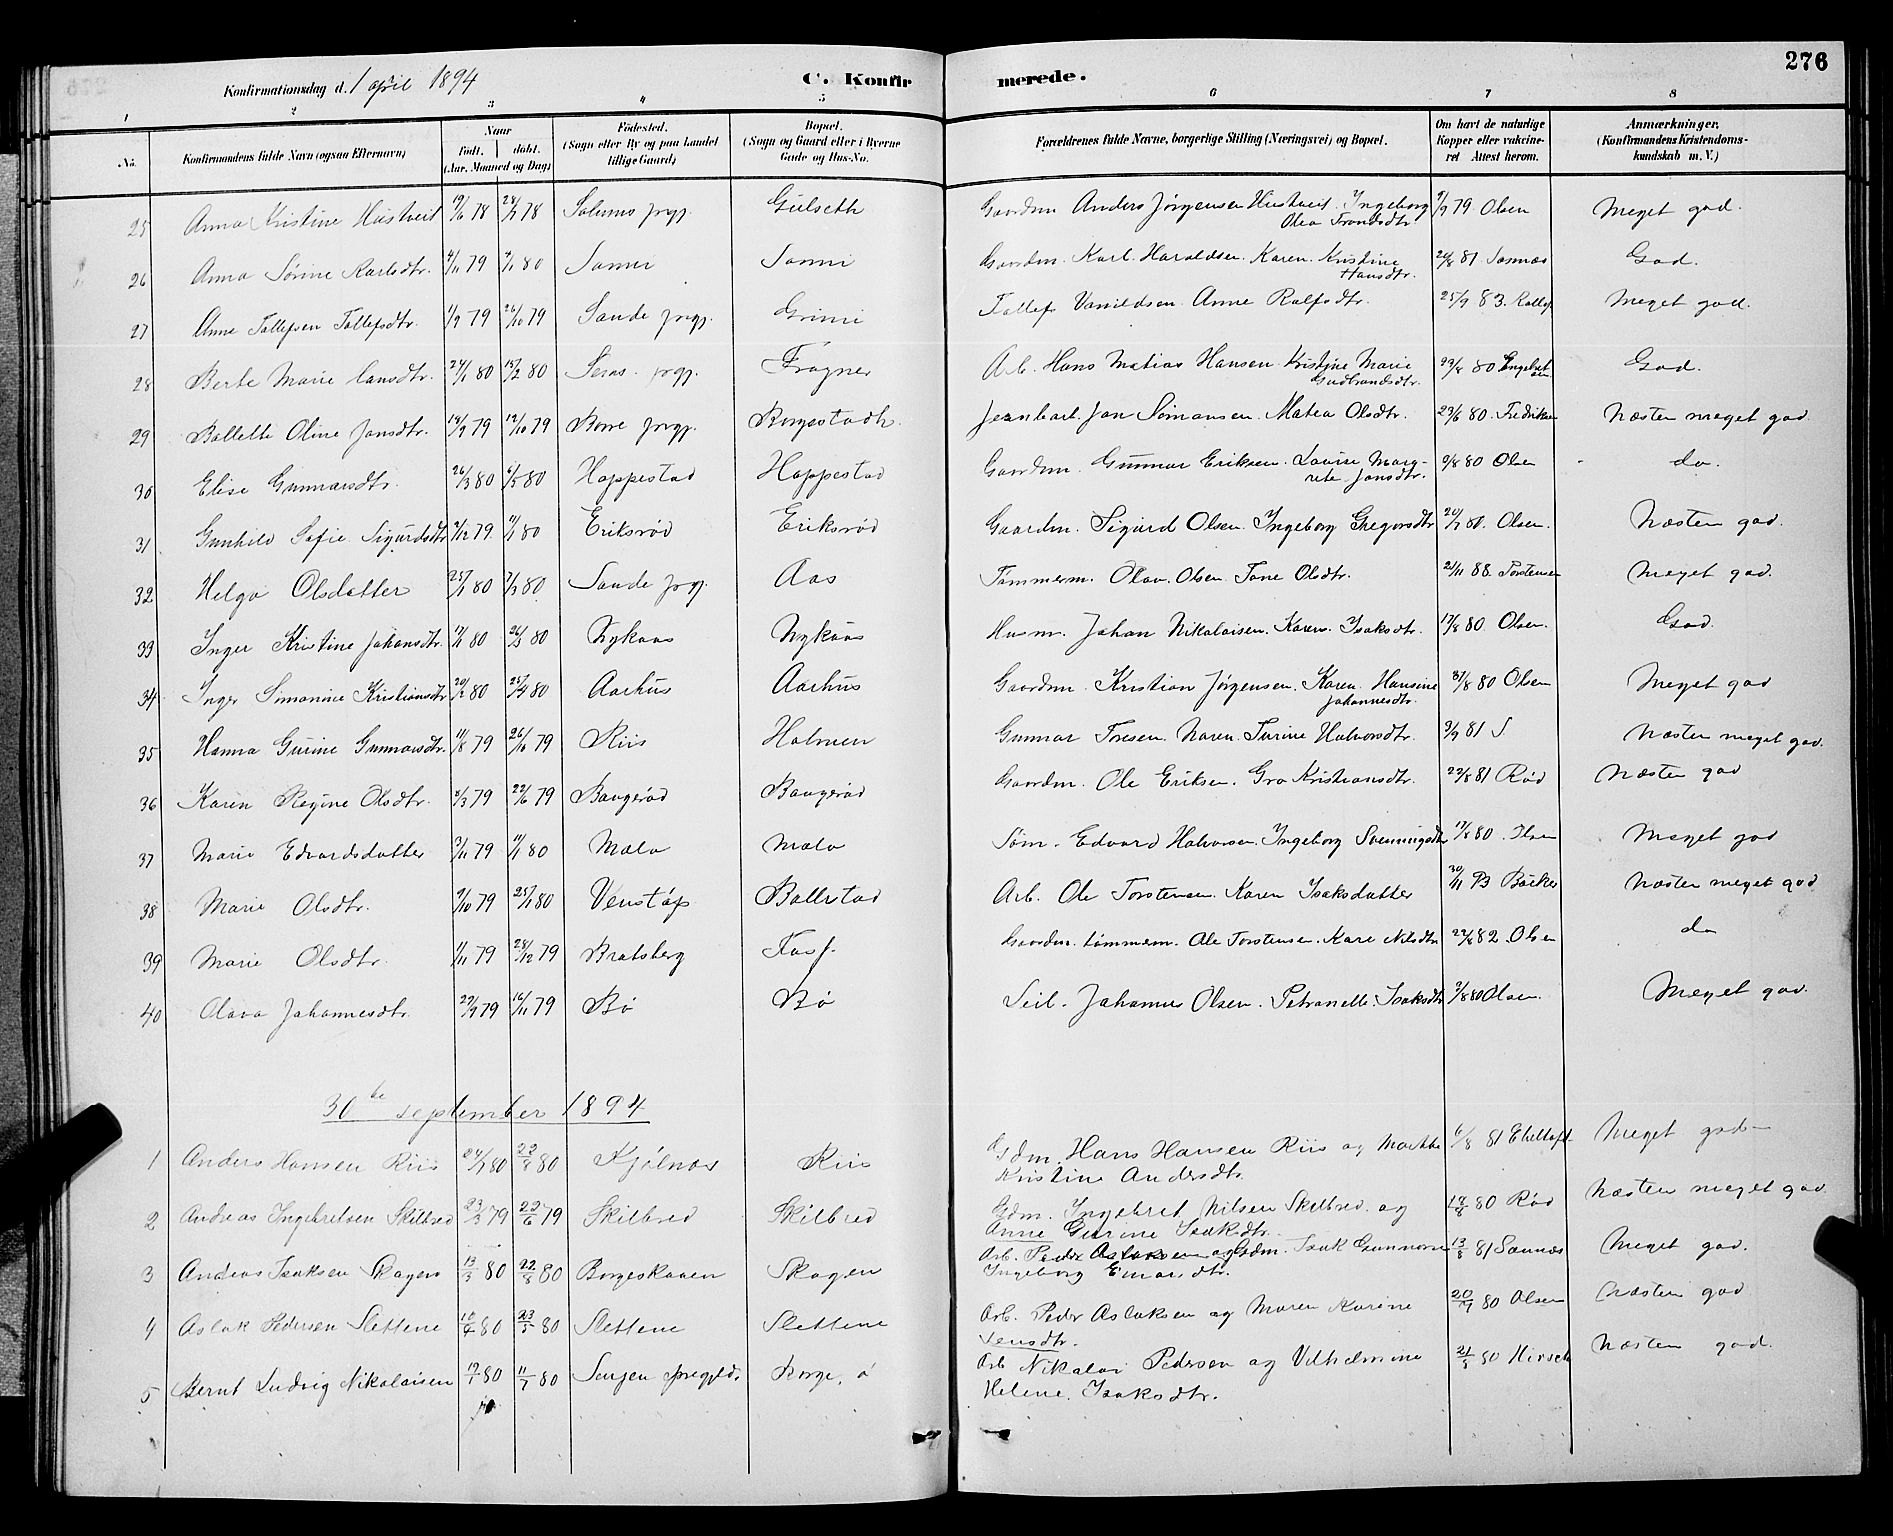 276
Konfirmationsdag d. 1 april 1894
C. Konfirmerede.
1 2 3 4 5 6 7 8
No. Konfirmandens fulde Navn (ogsaa Efternavn) Naar født. døbt. (Aar, Maaned og Dag) Fødested. (Sogn eller By og paa Landet tillige Gaard) Bopæl. (Sogn og Gaard eller i Byerne Gade og Hus-No. Forældrenes fulde Navne, borgerlige Stilling (Næringsvei) og Bopæl. Om havt de naturlige Kopper eller vakcineret Attest herom. Anmærkninger. (Konfirmandens Kristendomskundskab m. V.)
25 Anna Kristine Hustveit 19/6 78 28/7 78 Solums prgj. Gulseth Gaardm Anders Jørgensen Hustveit. Ingeborg Olea Trondsdtr. 9/9 79 Olsen Meget god.
26 Anna Sørine Karlsdtr. 4/11 79 7/1 80 Gaardm. Karl Haraldsen. Karen Kristine Hansdtr. 20/8 81 God.
27 Anne Tollefsen Tollefsdtr. 1/9 79 26/10 79 Sande prgj. Grini Tollef Anne Rolfsdtr. 25/9 83. Meget god.
28 Berte Marie 24/1 80 15/2 80 prgj. Frogner Arb. Hans Matias Hansen. Kristine Marie Gudbrandsdtr. 23/8 80 God.
29 Bollette Oline Jansdtr. 14/9 79 12/10 79 Borre prgj. Borgestadh. Jernbarb. Jan Simonsen. Matea Olsdtr. 23/6 80 Fredriksen Næsten meget god
30 Elise Gunnarsdtr. 26/3 80 6/5 80 Hoppestad Hoppestad Gaardm. Gunnar Eriksen. Lovise Margrete Jansdtr. 9/8 80 Olsen do.
31 Gunhild Sofie Sigurdsdtr 2/12 79. 11/1 80 Eriksrød Eriksrød Gaardm. Sigurd Olsen. Ingeborg Gregorsdtr 20/7 80. Olsen. Næsten god.
32 Helga Olsdatter 25/1 80 7/3 80 Sande prgj. Aas Tømmerm. Olav Olsen. Tone Olsdtr. 21/11 88. Torstensen Meget god.
33 Inger Kristine Johansdtr. 17/1 80 26/3 80 Nykaas Nykaas Husm. Johan Nikolaisen. Karen Isaksdtr. 17/8 80 Olsen. God.
34 Inger Simonine Kristiansdtr 20/2 80 25/4 80 Aarhus Aarhus Gaardm. Kristian Jørgensen. Karen Hansine Johannesdtr. 31/8 80 Olsen Meget god
35 Hanna Gurine Gunnarsdtr. 11/8 79 26/10 79 Riis Holmen Gunnar Maren Turine Halvorsdtr. 3/9 81 S Næsten meget god.
36 Karen Regine Olsdtr. 2/3 79 22/6 79 Baugerød Baugerød Gaardm. Ole Eriksen. Gro Kristiansdtr. 23/8 81 Rød Næsten god
37 Marie Edvardsdatter 3/11 79 11/1 80 Mæla Mæla Søm. Edvard Halvorsen. Ingeborg Svenningsdtr 17/8 80. Olsen Meget god
38 Marie Olsdtr. 9/10 79 25/1 80 Venstøp Bollestad Arb. Ole Torstensen. Karen Isaksdatter 30/11 Bøcker Næsten meget god
39 Marie Olsdtr. 1/11 79 28/12 79 Bratsberg Foss. Gaardm. tømmerm. Ole Torstensen. Kari Nilsdtr 22/8 82. Olsen do
40 Olava Johannesdtr. 29/9 79 16/11 79 Bø Bø Seil. Johannes Olsen. Petronelle Isaksdtr 9/8 80 Olsen. Meget god.
30te september 1894
1 Anders Hansen Riis 24/7 80 22/8 80 Kjølnæs Riis Gdm. Hans Hansen Riis og Marthe Kristine Andersdtr. 6/8 81 Eheltoft Meget god
2 Andreas Ingebretsen Skilbred 23/3 79 22/6 79 Skilbred Skilbred Gdm. Ingebret Nilsen Skilbred og Anne Gurine Isaksdtr. 18/8 80 Rød Næsten meget god
3 Andreas Isaksen Skogen 13/3 80 22/8 80 Borgeskaven Skogen Arb. Peder Aslaksen og Gdm. Isak Gunnarsen Ingeborg Einarsdtr. 13/8 81 Sannæs Meget god.
4 Aslak Pedersen Slettene 18/4 80 23/5 80 Slettene Slettene Arb. Peder Aslaksen og Maren Karine Jensdtr. 20/9 80 Olsen Næsten god
5 Bernt Ludvig Nikolaisen 19/1 80 11/7 80 prægjeld. Borge, ø Arb Nikolai Pedersen og Vilhelmine Helene Isaksdtr. 21/5 80 Hirsch Næsten god.